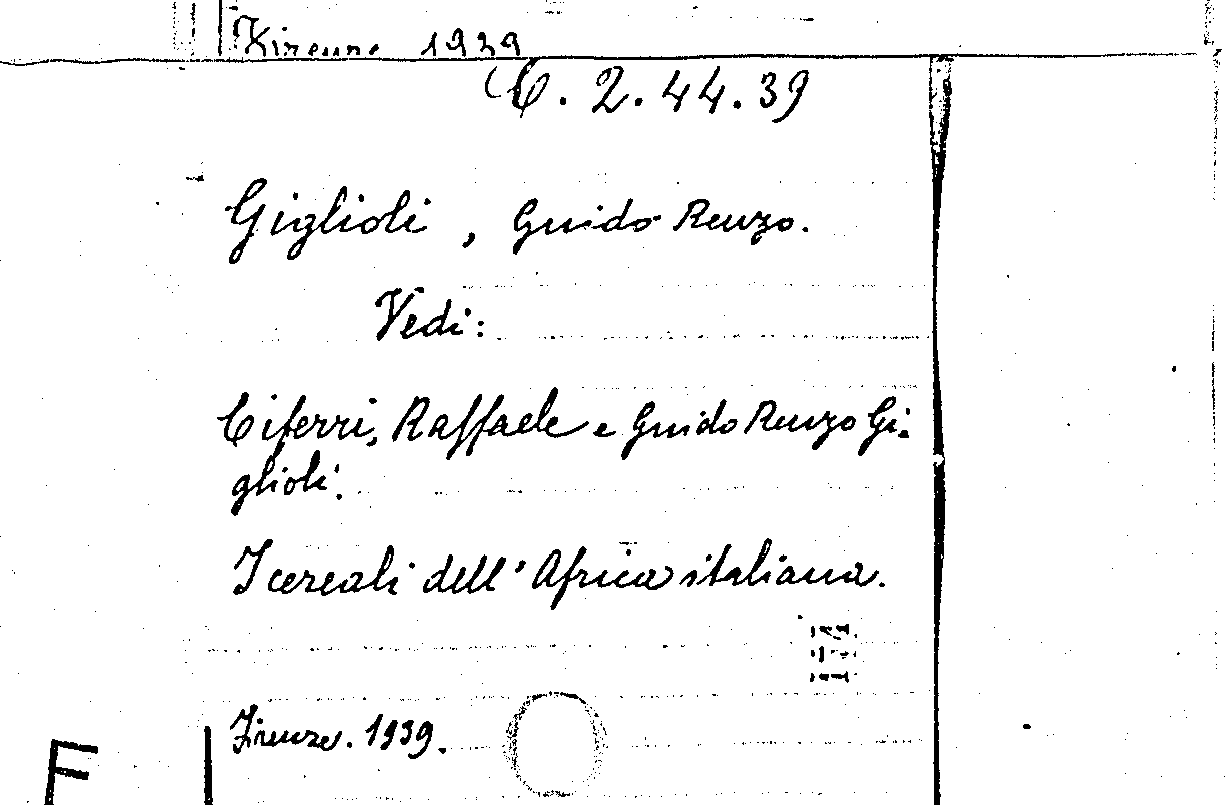 Firenze 1939
C. 2. 44. 39
Giglioli, Guido Renzo.
Vedi:
Ciferri, Raffaele e Guido Renzo Gi-
glioli.
I cereali dell'Africa italiana.
Firenze. 1939.
F